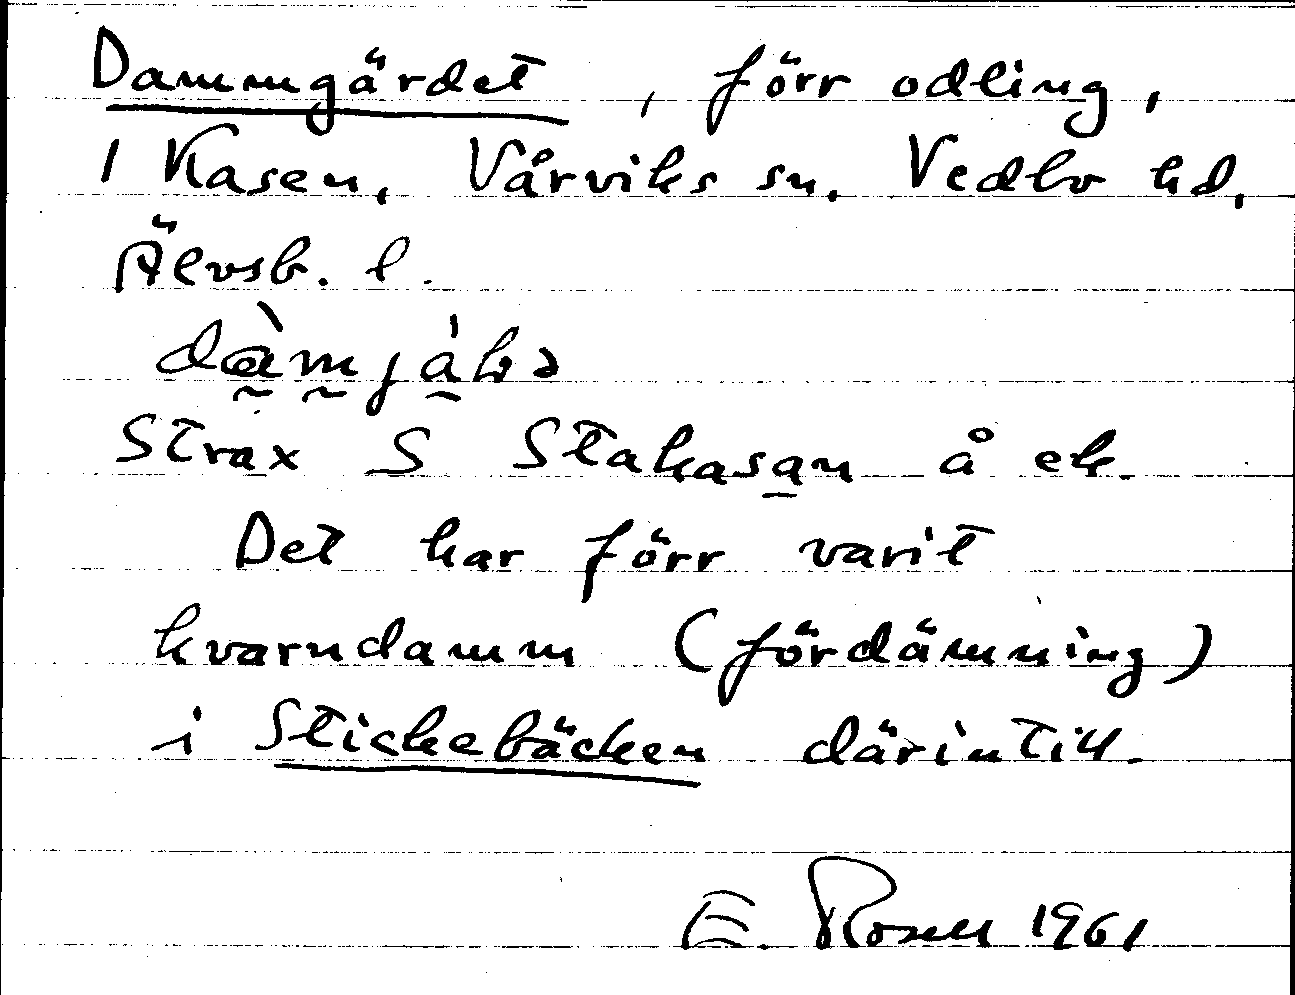 Dammgärdet, förr odling,
1 Kasen, Vårviks sn. Vedbo hd,
Älvsb. l.
Strax S Stakasan å ek.
Det har förr varit
kvarndamm (fördämning)
i Stickebäcken därintill.
E. Rosell 1961